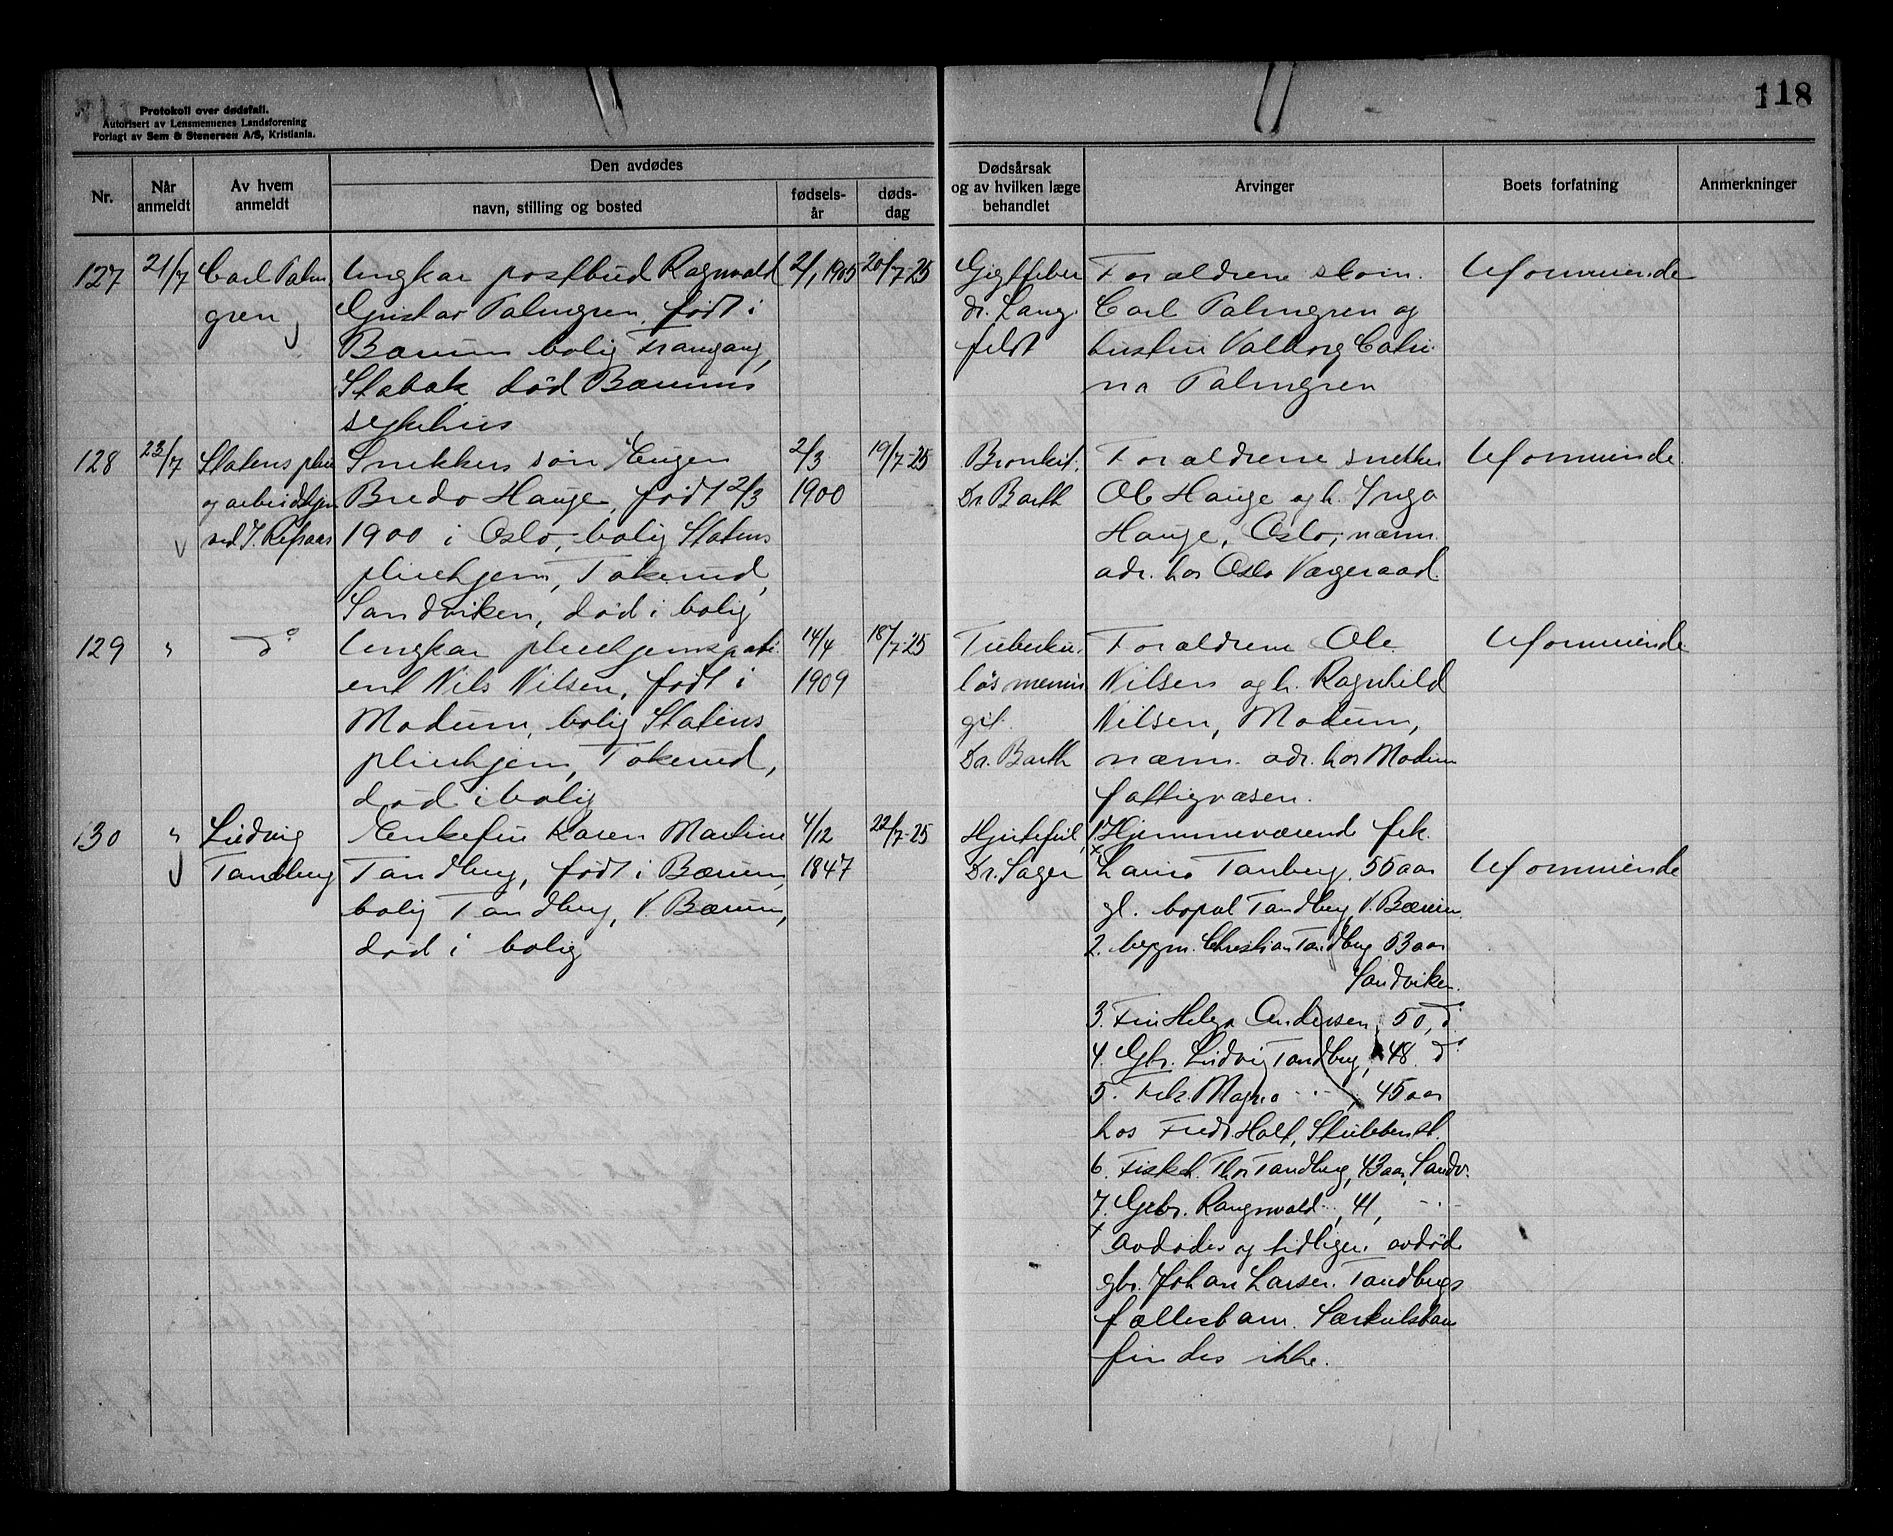 118
Protokoll over dødsfall.
Autorisert av Lensmennenes Landsforening
Forlagt av Sem & Stenersen A/S, Kristiania.
Nr.
Når anmeldt
Av hvem anmeldt
Den avdødes
navn, stilling og bosted
fødsels-år
døds-dag
Dødsårsak og av hvilken læge behandlet
Arvinger
Boets forfatning
Anmerkninger
127
21/7
Carl Palm
gren
Ungkar postbud Ragnvald
Gustav Palmgren, født i
Bærum bolig Framgang,
Stabæk død Bærums
sykehus
2/1 1905
20/7-25
Gigtfeber
dr. Lang-
feldt
Forældrene skom.
Carl Palmgren og
hustru Valborg Catri-
na Palmgren
Uformuende
128
23/7
Statens pleie
og arbeidshjem
ved J. Refsaas
Snekkers søn Eugen
Bredo Hauge, født 2/3
1900 i Oslo, bolig Statens
pleiehjem, Tokerud,
Sandviken, død i bolig
2/3
1900
19/7-25
Bronkit.
Dr. Barth
Forældrene snekker
Ole Hauge og h. Inga
Hauge, Oslo, nærm.
adr. hos Oslo Vergeraad.
Uformuende
129
"
do
Ungkar pleiehjemspati-
ent Nils Nilsen, født i
Modum, bolig Statens
pleiehjem, Tokerud,
død i bolig
14/4
1909
18/7-25
Tuberku-
løs menin
git.
Dr. Barth
Forældrene Ole
Nilsen og h. Ragnhild
Nilsen, Modum,
nærm. adr. hos Modum
fattigvæsen.
Uformuende
130
"
Ludvig
Tandberg
Enkefru Karen Martine
Tandberg, født i Bærum,
bolig Tandberg, V. Bærum,
død i bolig
4/12
1847
22/7-25
Hjertefeil,
Dr. Sager
1. Hjemmeværende frk.
x Laura Tanberg, 55 aar
gl. bopæl Tandberg, V. Bærum
2. bygm. Christian Tandberg 53 aar
Sandviken.
3. Fru Helga Andersen, 50, do
4. Gbr. Ludvig Tandberg, 48. do
5. Frk. Magna - " - , 45 aar
hos Fred. Holt, Stubben st.
6. Fiskh. Thor Tandberg, 43 aar, Sandv.
7. Gbr. Rangnvald - " -, 41, - " -
x Avdødes og tidligere avdøde
gbr. Johan Larsen Tandbergs
fællesbarn. Særkulsbarn
findes ikke.
Uformuende